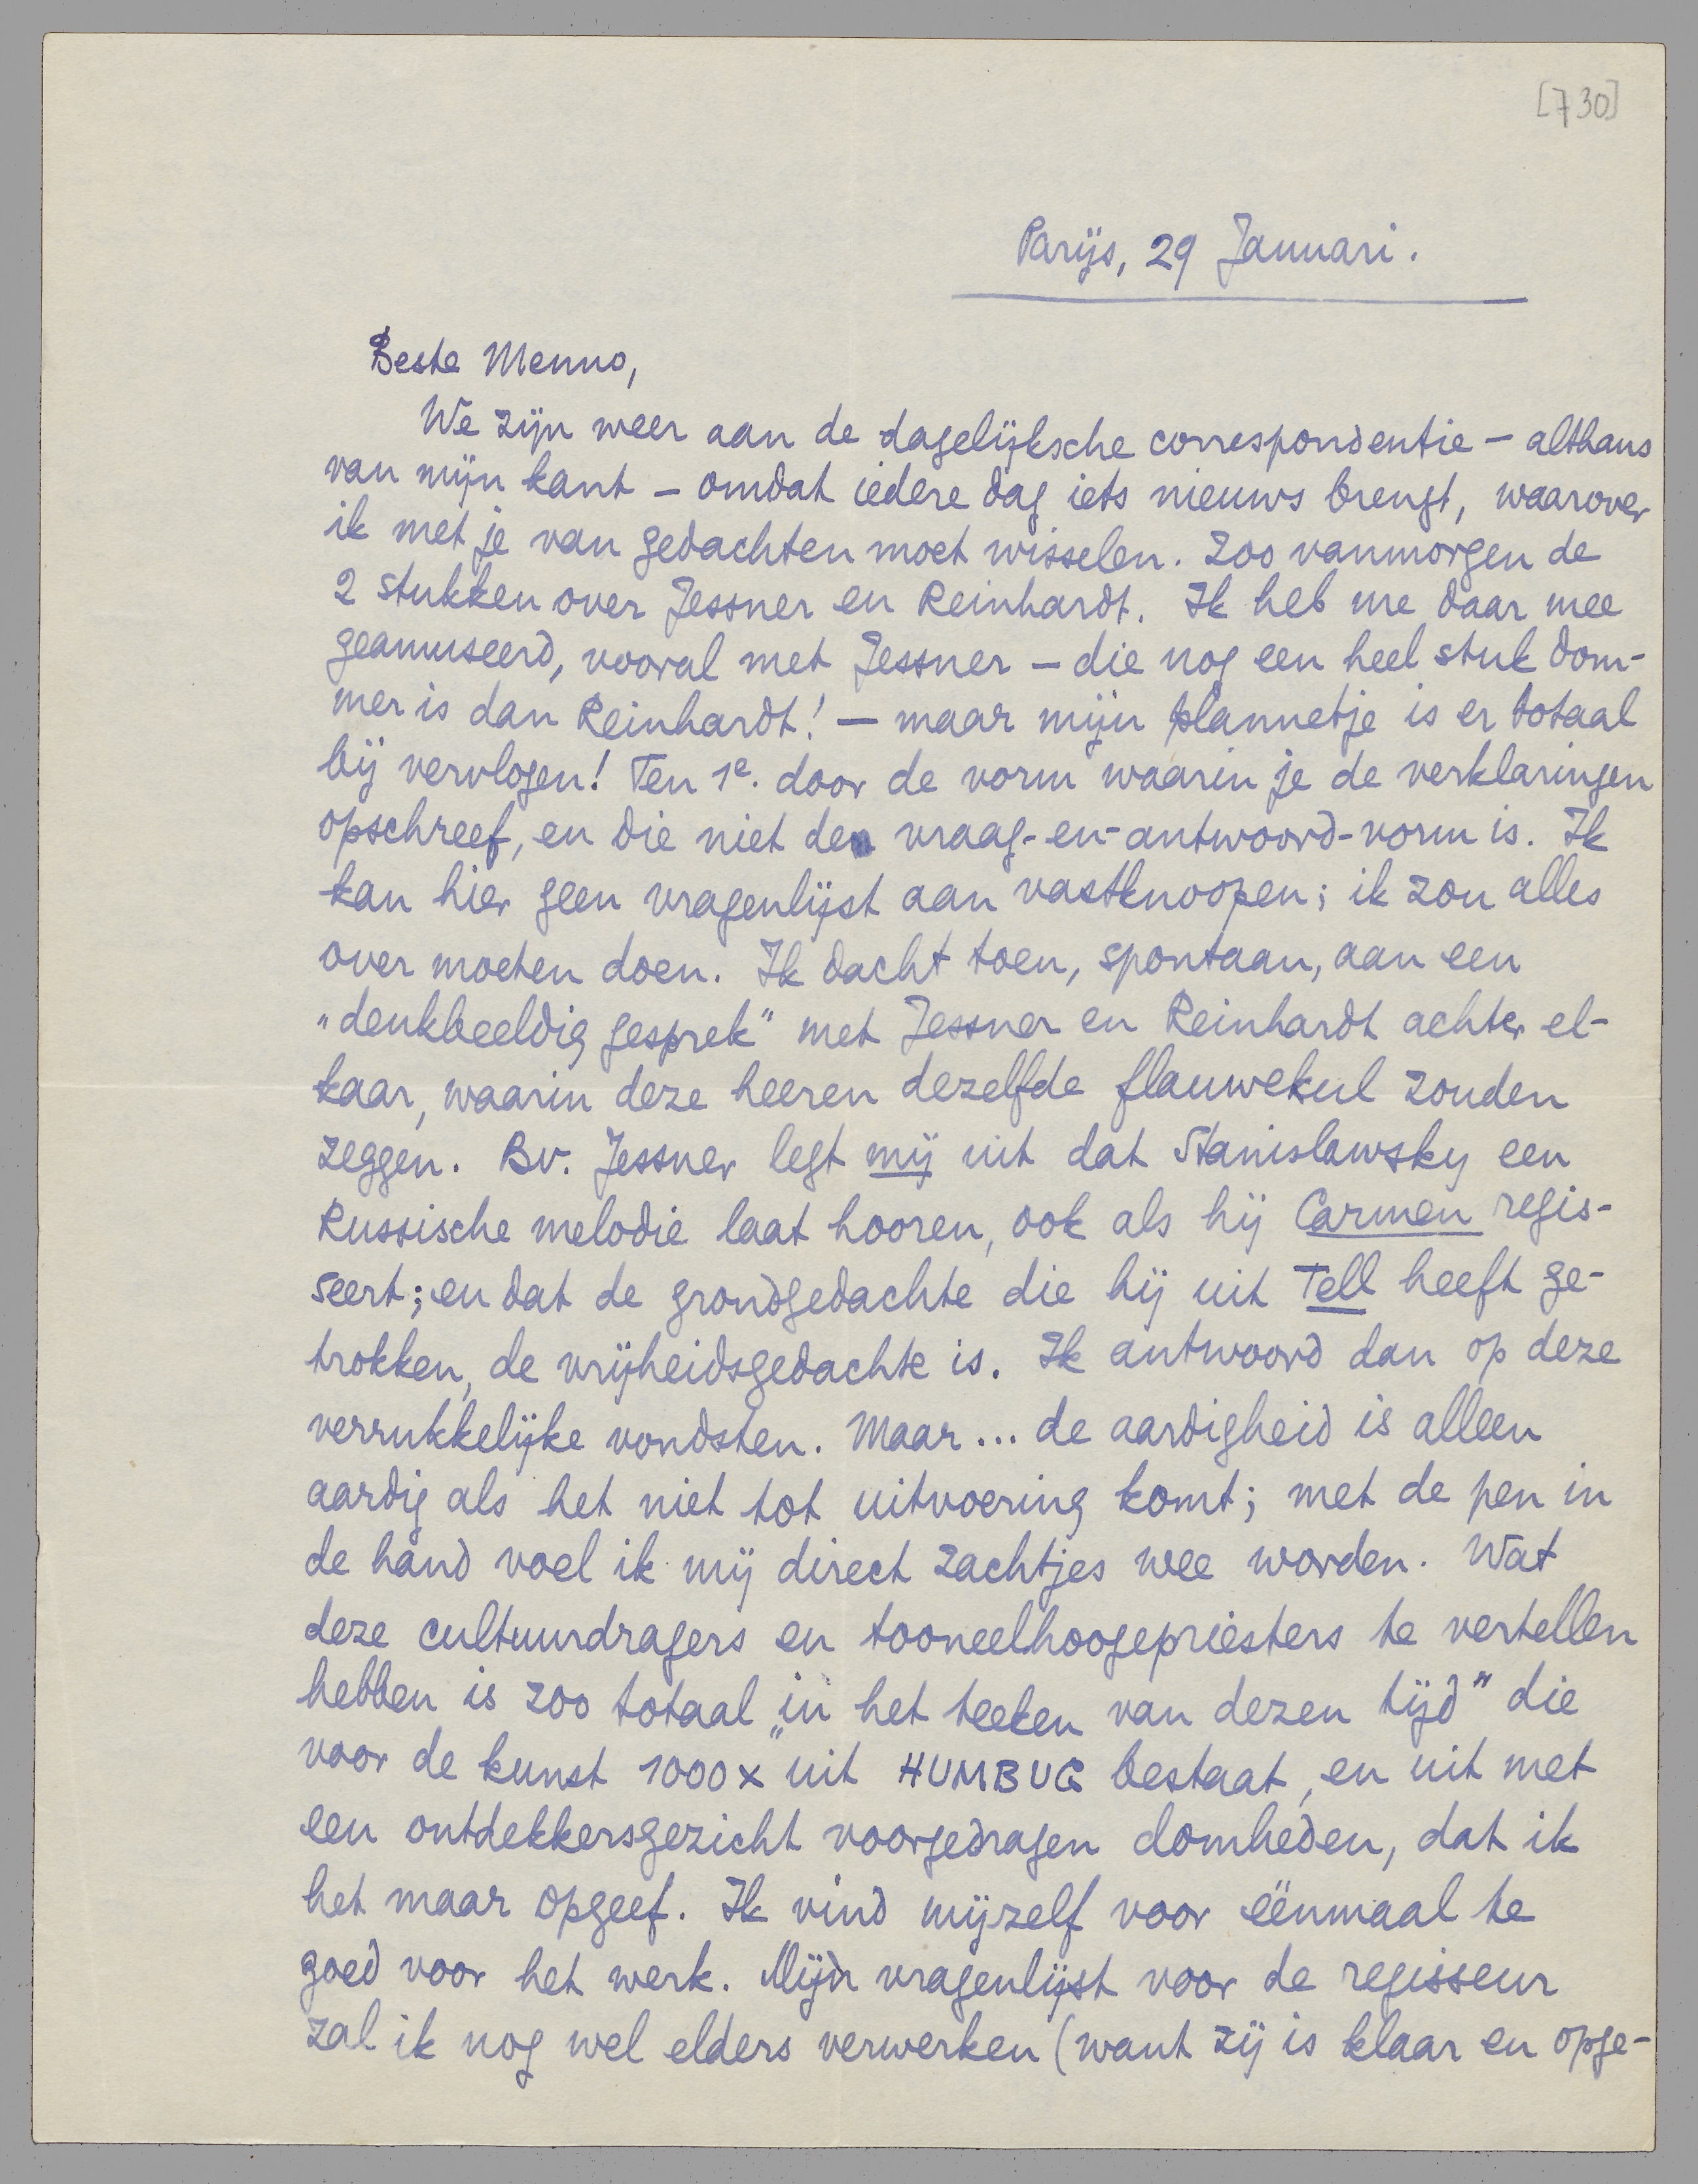 [730]
Parijs, 29 Januari.
Beste Menno,
We zijn weer aan de dagelijksche correspondentie — althans
van mijn kant — omdat iedere dag iets nieuws brengt, waarover
ik met je van gedachten moet wisselen. Zoo vanmorgen de
2 stukken over Jessner en Reinhardt. Ik heb me daar mee
geamuseerd, vooral met Jessner — die nog een heel stuk dom-
mer is dan Reinhardt! — maar mijn plannetje is er totaal
bij vervlogen! Ten 1e. door de vorm waarin je de verklaringen
opschreef, en die niet de vraag-en-antwoord-vorm is. Ik
kan hier geen vragenlijst aan vastknoopen; ik zou alles
over moeten doen. Ik dacht toen, spontaan, aan een
„denkbeeldig gesprek" met Jessner en Reinhardt achter el-
kaar, waarin deze heeren dezelfde flauwekul zouden
zeggen. Bv. Jessner legt mij uit dat Stanislawsky een
Russische melodie laat hooren, ook als hij Carmen regis-
seert; en dat de grondgedachte die hij uit Tell heeft ge-
trokken, de vrijheidsgedachte is. Ik antwoord dan op deze
verrukkelijke vondsten. Maar... de aardigheid is alleen
aardig als het niet tot uitvoering komt; met de pen in
de hand voel ik mij direct zachtjes wee worden. Wat
deze cultuurdragers en tooneelhoogepriesters te vertellen
hebben is zoo totaal „in het teeken van dezen tijd" die
voor de kunst 1000 x uit HUMBUG bestaat, en uit met
een ontdekkersgezicht voorgedragen domheden, dat ik
het maar opgeef. Ik vind mijzelf voor éénmaal te
goed voor het werk. Mijn vragenlijst voor de regisseur
zal ik nog wel elders verwerken (want zij is klaar en opge-